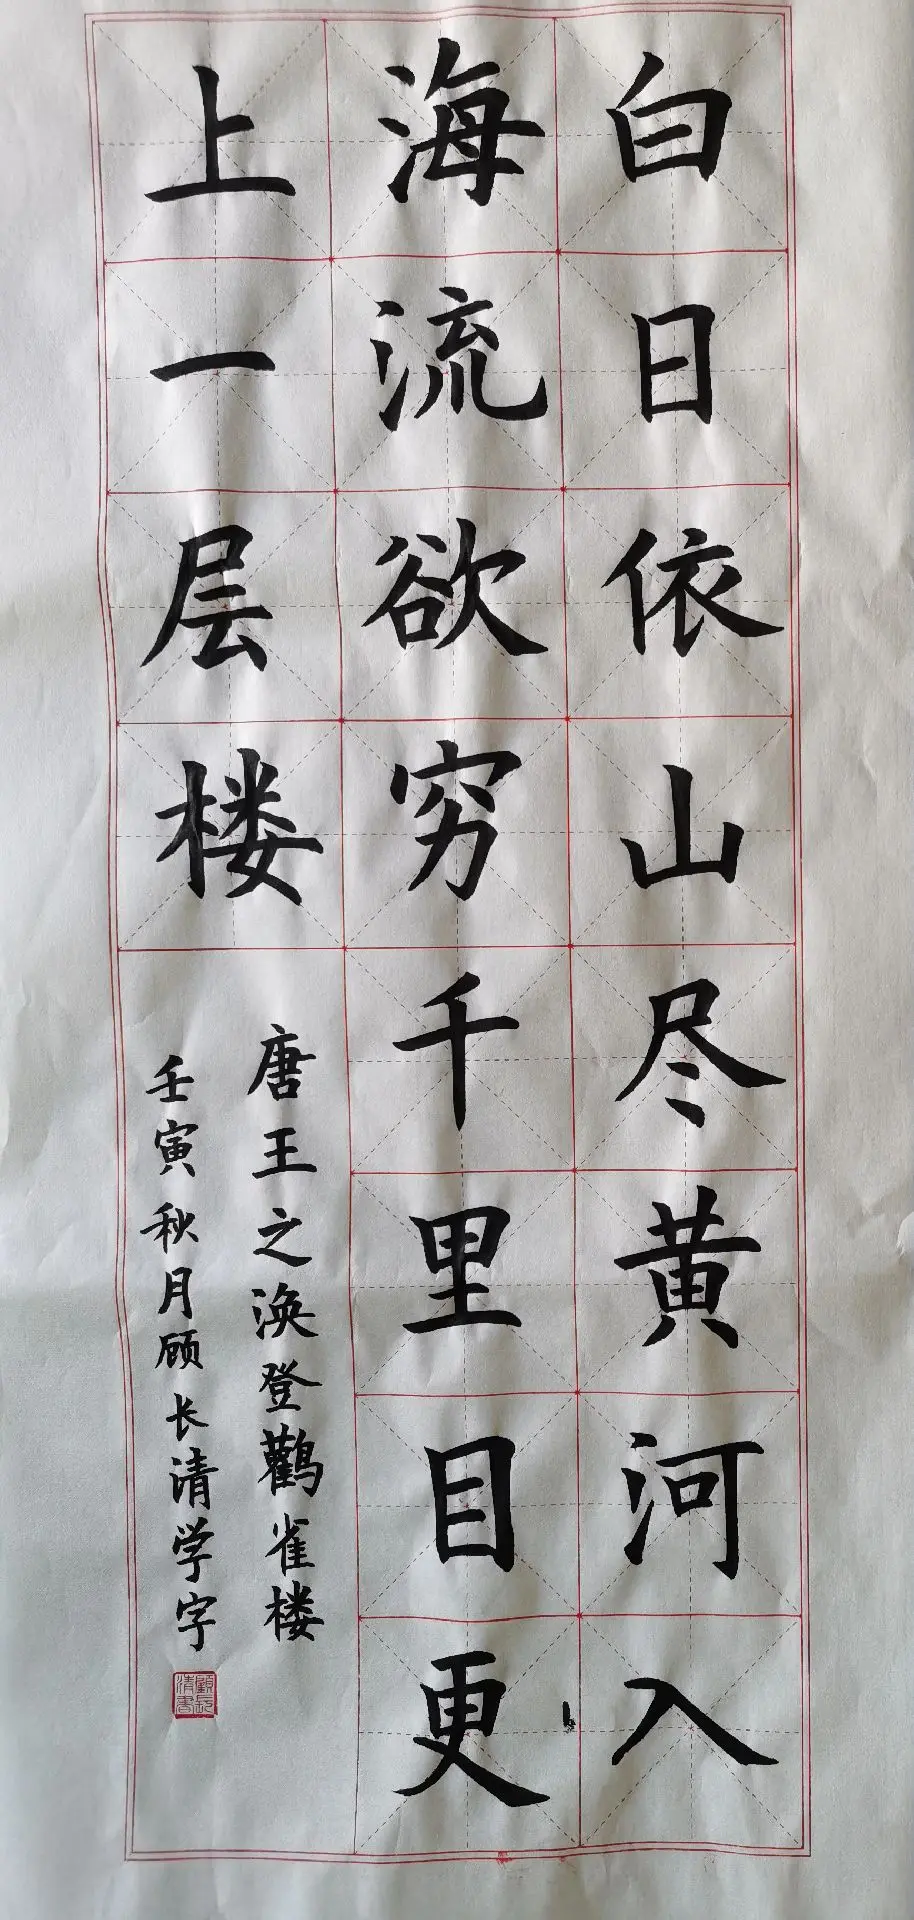 白日依山尽黄河入
海流欲穷千里目更
上一层楼
唐王之涣登鹳雀楼
壬寅秋月顾长清学字
顧長清書